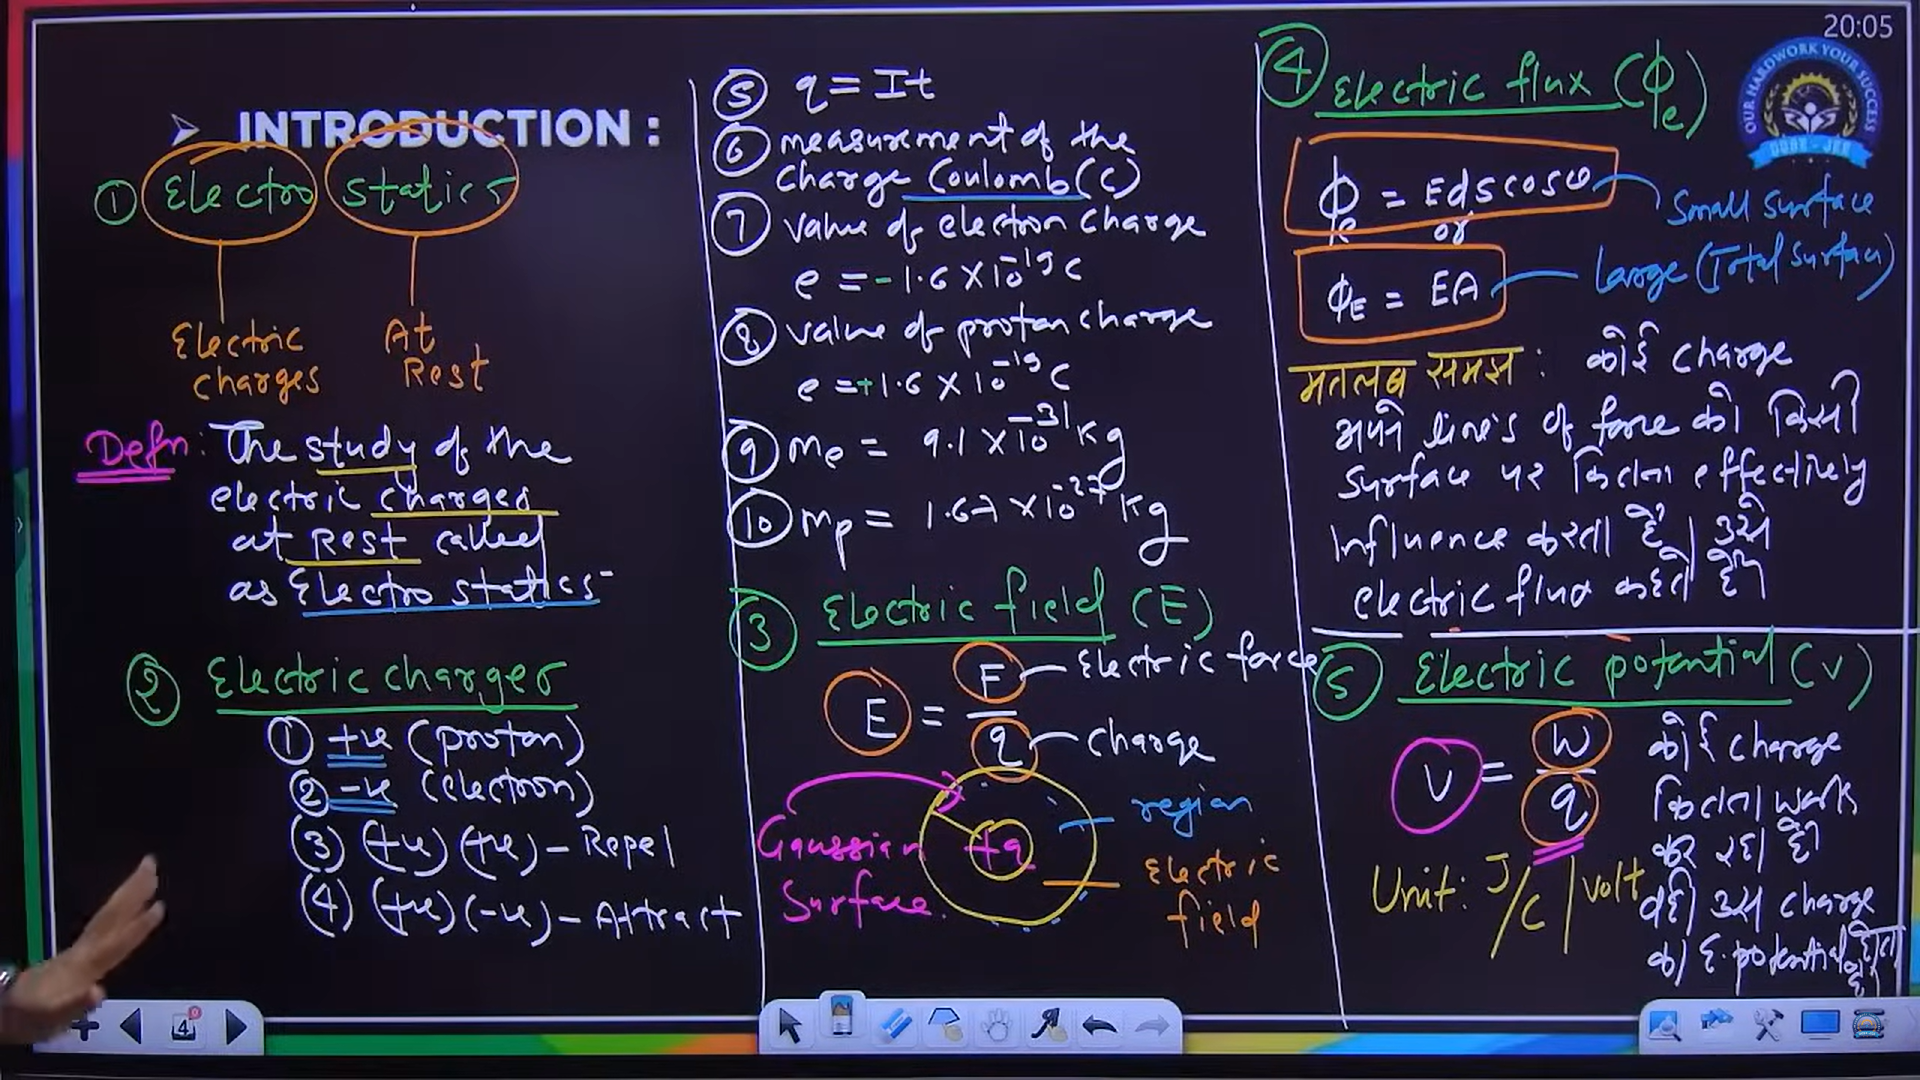 20:05
OUR HARDWORK YOUR SUCCESS
➤ INTRODUCTION :
① Electro statics
Electric charges
At Rest
Defn: The study of the
electric charges
at Rest called
as Electro statics
② Electric charges
① +ve (proton)
② -ve (electron)
③ (+ve) (+ve) - Repel
④ (+ve) (-ve) - Attract
⑤ q = It
⑥ measurement of the
charge Coulomb (C)
⑦ value of electron charge
e = -1.6 × 10⁻¹⁹ C
⑧ value of proton charge
e = +1.6 × 10⁻¹⁹ C
⑨ me = 9.1 × 10⁻³¹ kg
⑩ mp = 1.67 × 10⁻²⁷ kg
③ Electric field (E)
E = F/q
Electric force
charge
+q
region
Electric field
Gaussian Surface
④ Electric flux (ϕe)
ϕe = Edscosθ
Small surface
or
ϕE = EA
Large (Total surface)
मतलब समझ : कोई charge
अपने line's of force को किसी
surface पर कितना effectively
influence करता है। उसे
electric flux कहते है।
⑤ Electric potential (V)
V = W/q
Unit: J/C | volt
कोई charge
कितना work
कर रहा है।
वही उस charge
का E. potential होता है।
4